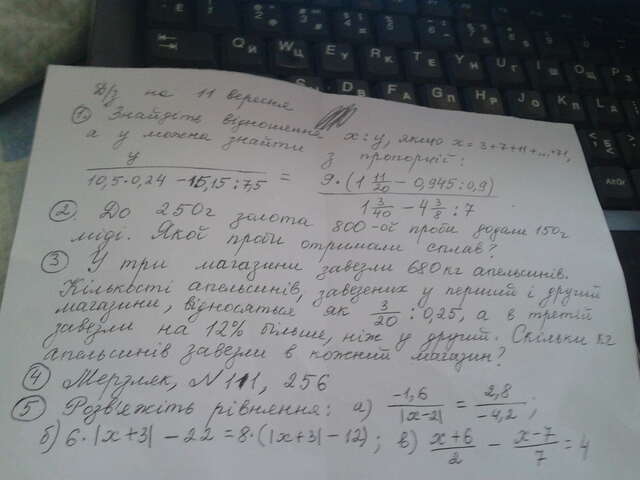 Д/з на 11 вересня
1. Знайдіть відношення x : y, якщо x = 3+7+11+...+71,
а y можна знайти з пропорції:
y / (10,5·0,24 − 15,15 : 7,5) = 9·(1 11/20 − 0,945 : 0,9) / (1 3/40 − 4 3/8 : 7)
2. До 250г золота 800-ої проби додали 150г
міді. Якої проби отримали сплав?
3 У три магазини завезли 680 кг апельсинів.
Кількості апельсинів, завезених у перший і другий
магазини, відносяться як 3/20 : 0,25, а в третій
завезли на 12% більше, ніж у другий. Скільки кг
апельсинів завезли в кожний магазин?
4 Мерзляк, N 111, 256
5 Розв'яжіть рівняння: а) −1,6 / |x−2| = 2,8 / −4,2 ;
б) 6·|x+3| − 22 = 8·(|x+3| − 12) ; в) x+6 / 2 − x−7 / 7 = 4